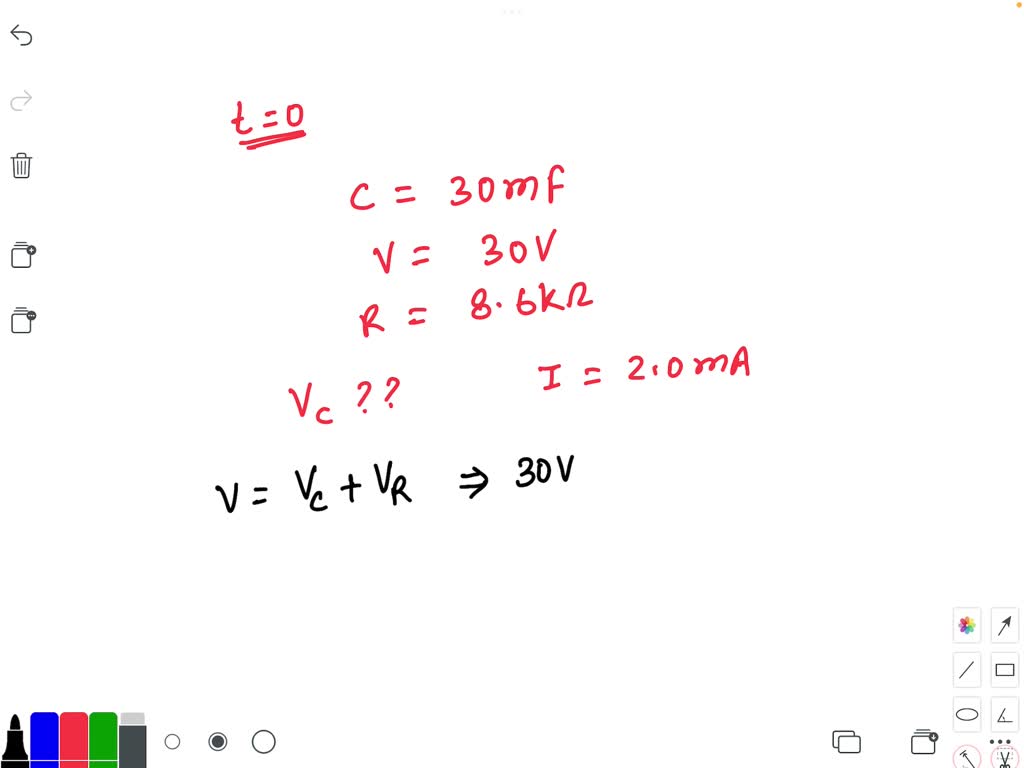 t=0
C = 30mF
V = 30V
R = 8.6kΩ
Vc ?? I = 2.0mA
V = Vc + VR ⇒ 30V